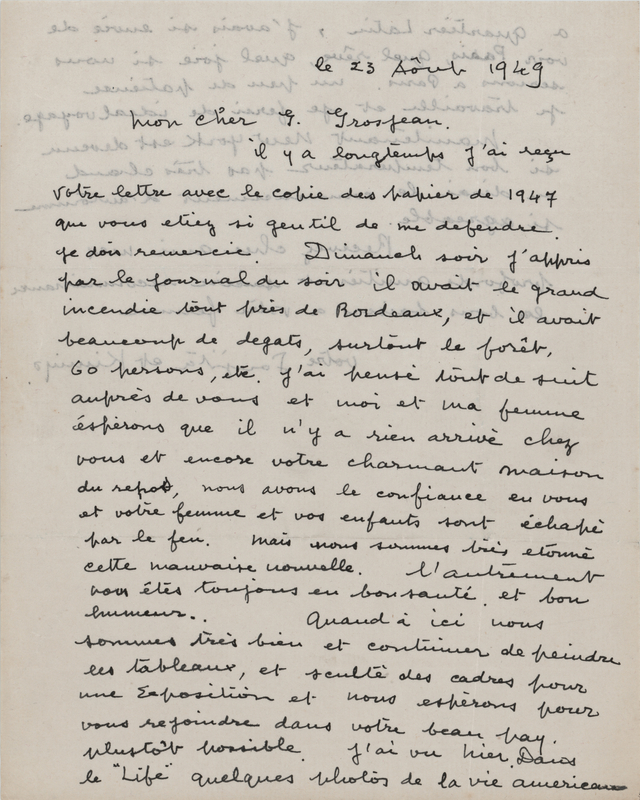 le 23 Aôut 1949
Mon cher G. Grosjean.
il y a longtemps j'ai reçu
votre lettre avec le copie des papier de 1947
que vous etiez si gentil de me defendre.
je dois remercie. Dimanch soir j'appris
par le journal du soir il avait le grand
incendie tout près de Bordeaux, et il avait
beaucoup de degats, surtout le forêt,
60 persons, etc. j'ai pensé tout de suit
auprès de vous et moi et ma femme
éspèrons que il n'y a rien arrivé chez
vous et encore votre charmant maison
du repos, nous avons le confiance en vous
et votre femme et vos enfants sont échapé
par le feu. Mais nous sommes très etonné
cette mauvaise nouvelle. l'autrement
vous êtes toujous en bon santé. et bon
humeur.. Quand à ici nous
sommes très bien et continuer de peindre
les tableaux, et sculté des cadres pour
une Exposition et nous espérons pour
vous rejoindre dans votre beau pay.
plustôt possible. J'ai vu hier, Dans
le "Life" quelques photos de la vie americaine